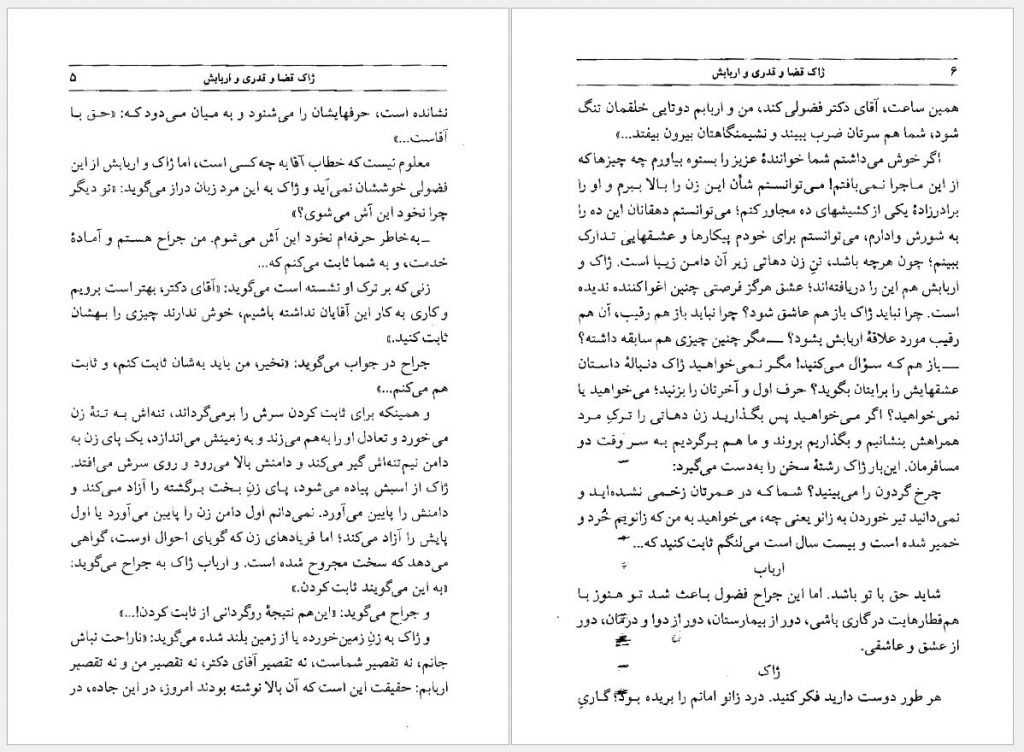 ژاک قضا و قدری و اربابش ۵
نشانده است، حرفهایشان را می‌شنود و به میان می‌دود که: «حق با
آقاست...»
معلوم نیست که خطاب آقا به چه کسی است، اما ژاک و اربابش از این
فضولی خوششان نمی‌آید و ژاک به این مرد زبان دراز می‌گوید: «تو دیگر
چرا نخود این آش می‌شوی؟»
ــ به‌خاطر حرفه‌ام نخود این آش می‌شوم. من جراح هستم و آمادهٔ
خدمت، و به شما ثابت می‌کنم که...
زنی که بر ترک او نشسته است می‌گوید: «آقای دکتر، بهتر است برویم
و کاری به کار این آقایان نداشته باشیم، خوش ندارند چیزی را بهشان
ثابت کنید.»
جراح در جواب می‌گوید: «نخیر، من باید به‌شان ثابت کنم، و ثابت
هم می‌کنم...»
و همینکه برای ثابت کردن سرش را برمی‌گرداند، تنه‌اش به تنهٔ زن
می‌خورد و تعادل او را به‌هم می‌زند و به زمینش می‌اندازد، یک پای زن به
دامن نیم‌تنه‌اش گیر می‌کند و دامنش بالا می‌رود و روی سرش می‌افتد.
ژاک از اسبش پیاده می‌شود، پای زنِ بخت برگشته را آزاد می‌کند و
دامنش را پایین می‌آورد. نمی‌دانم اول دامن زن را پایین می‌آورد یا اول
پایش را آزاد می‌کند؛ اما فریادهای زن که گویای احوال اوست، گواهی
می‌دهد که سخت مجروح شده است. و ارباب ژاک به جراح می‌گوید:
«به این می‌گویند ثابت کردن.»
و جراح می‌گوید: «این‌هم نتیجهٔ روگردانی از ثابت کردن!...»
و ژاک به زنِ زمین‌خورده یا از زمین بلند شده می‌گوید: «ناراحت نباش
جانم، نه تقصیر شماست، نه تقصیر آقای دکتر، نه تقصیر من و نه تقصیر
اربابم: حقیقت این است که آن بالا نوشته بودند امروز، در این جاده، در
۶ ژاک قضا و قدری و اربابش
همین ساعت، آقای دکتر فضولی کند، من و اربابم دوتایی خلقمان تنگ
شود، شما هم سرتان ضرب ببیند و نشیمنگاهتان بیرون بیفتد...»
اگر خوش می‌داشتم شما خوانندهٔ عزیز را بستوه بیاورم چه چیزها که
از این ماجرا نمی‌بافتم! می‌توانستم شأن این زن را بالا ببرم و او را
برادرزادهٔ یکی از کشیشهای ده مجاور کنم؛ می‌توانستم دهقانان این ده را
به شورش وادارم، می‌توانستم برای خودم پیکارها و عشقهایی تدارک
ببینم؛ چون هرچه باشد، تنِ زن دهاتی زیر آن دامن زیبا است. ژاک و
اربابش هم این را دریافته‌اند؛ عشق هرگز فرصتی چنین اغواکننده ندیده
است. چرا نباید ژاک باز هم عاشق شود؟ چرا نباید باز هم رقیب، آن هم
رقیب مورد علاقهٔ اربابش بشود؟ ــ مگر چنین چیزی هم سابقه داشته؟
ــ باز هم که سؤال می‌کنید! مگر نمی‌خواهید ژاک دنبالهٔ داستان
عشقهایش را برایتان بگوید؟ حرف اول و آخرتان را بزنید؛ می‌خواهید یا
نمی‌خواهید؟ اگر می‌خواهید پس بگذارید زن دهاتی را ترکِ مرد
همراهش بنشانیم و بگذاریم بروند و ما هم برگردیم به سر وقت دو
مسافرمان. این‌بار ژاک رشتهٔ سخن را به‌دست می‌گیرد:
چرخ گردون را می‌بینید؟ شما که در عمرتان زخمی نشده‌اید و
نمی‌دانید تیر خوردن به زانو یعنی چه، می‌خواهید به من که زانویم خُرد و
خمیر شده است و بیست سال است می‌لنگم ثابت کنید که...
ارباب
شاید حق با تو باشد. اما این جراح فضول باعث شد تو هنوز با
هم‌قطارهایت در گاری باشی، دور از بیمارستان، دور از دوا و درمان، دور
از عشق و عاشقی.
ژاک
هر طور دوست دارید فکر کنید. درد زانو امانم را بریده بود؛ گاریِ